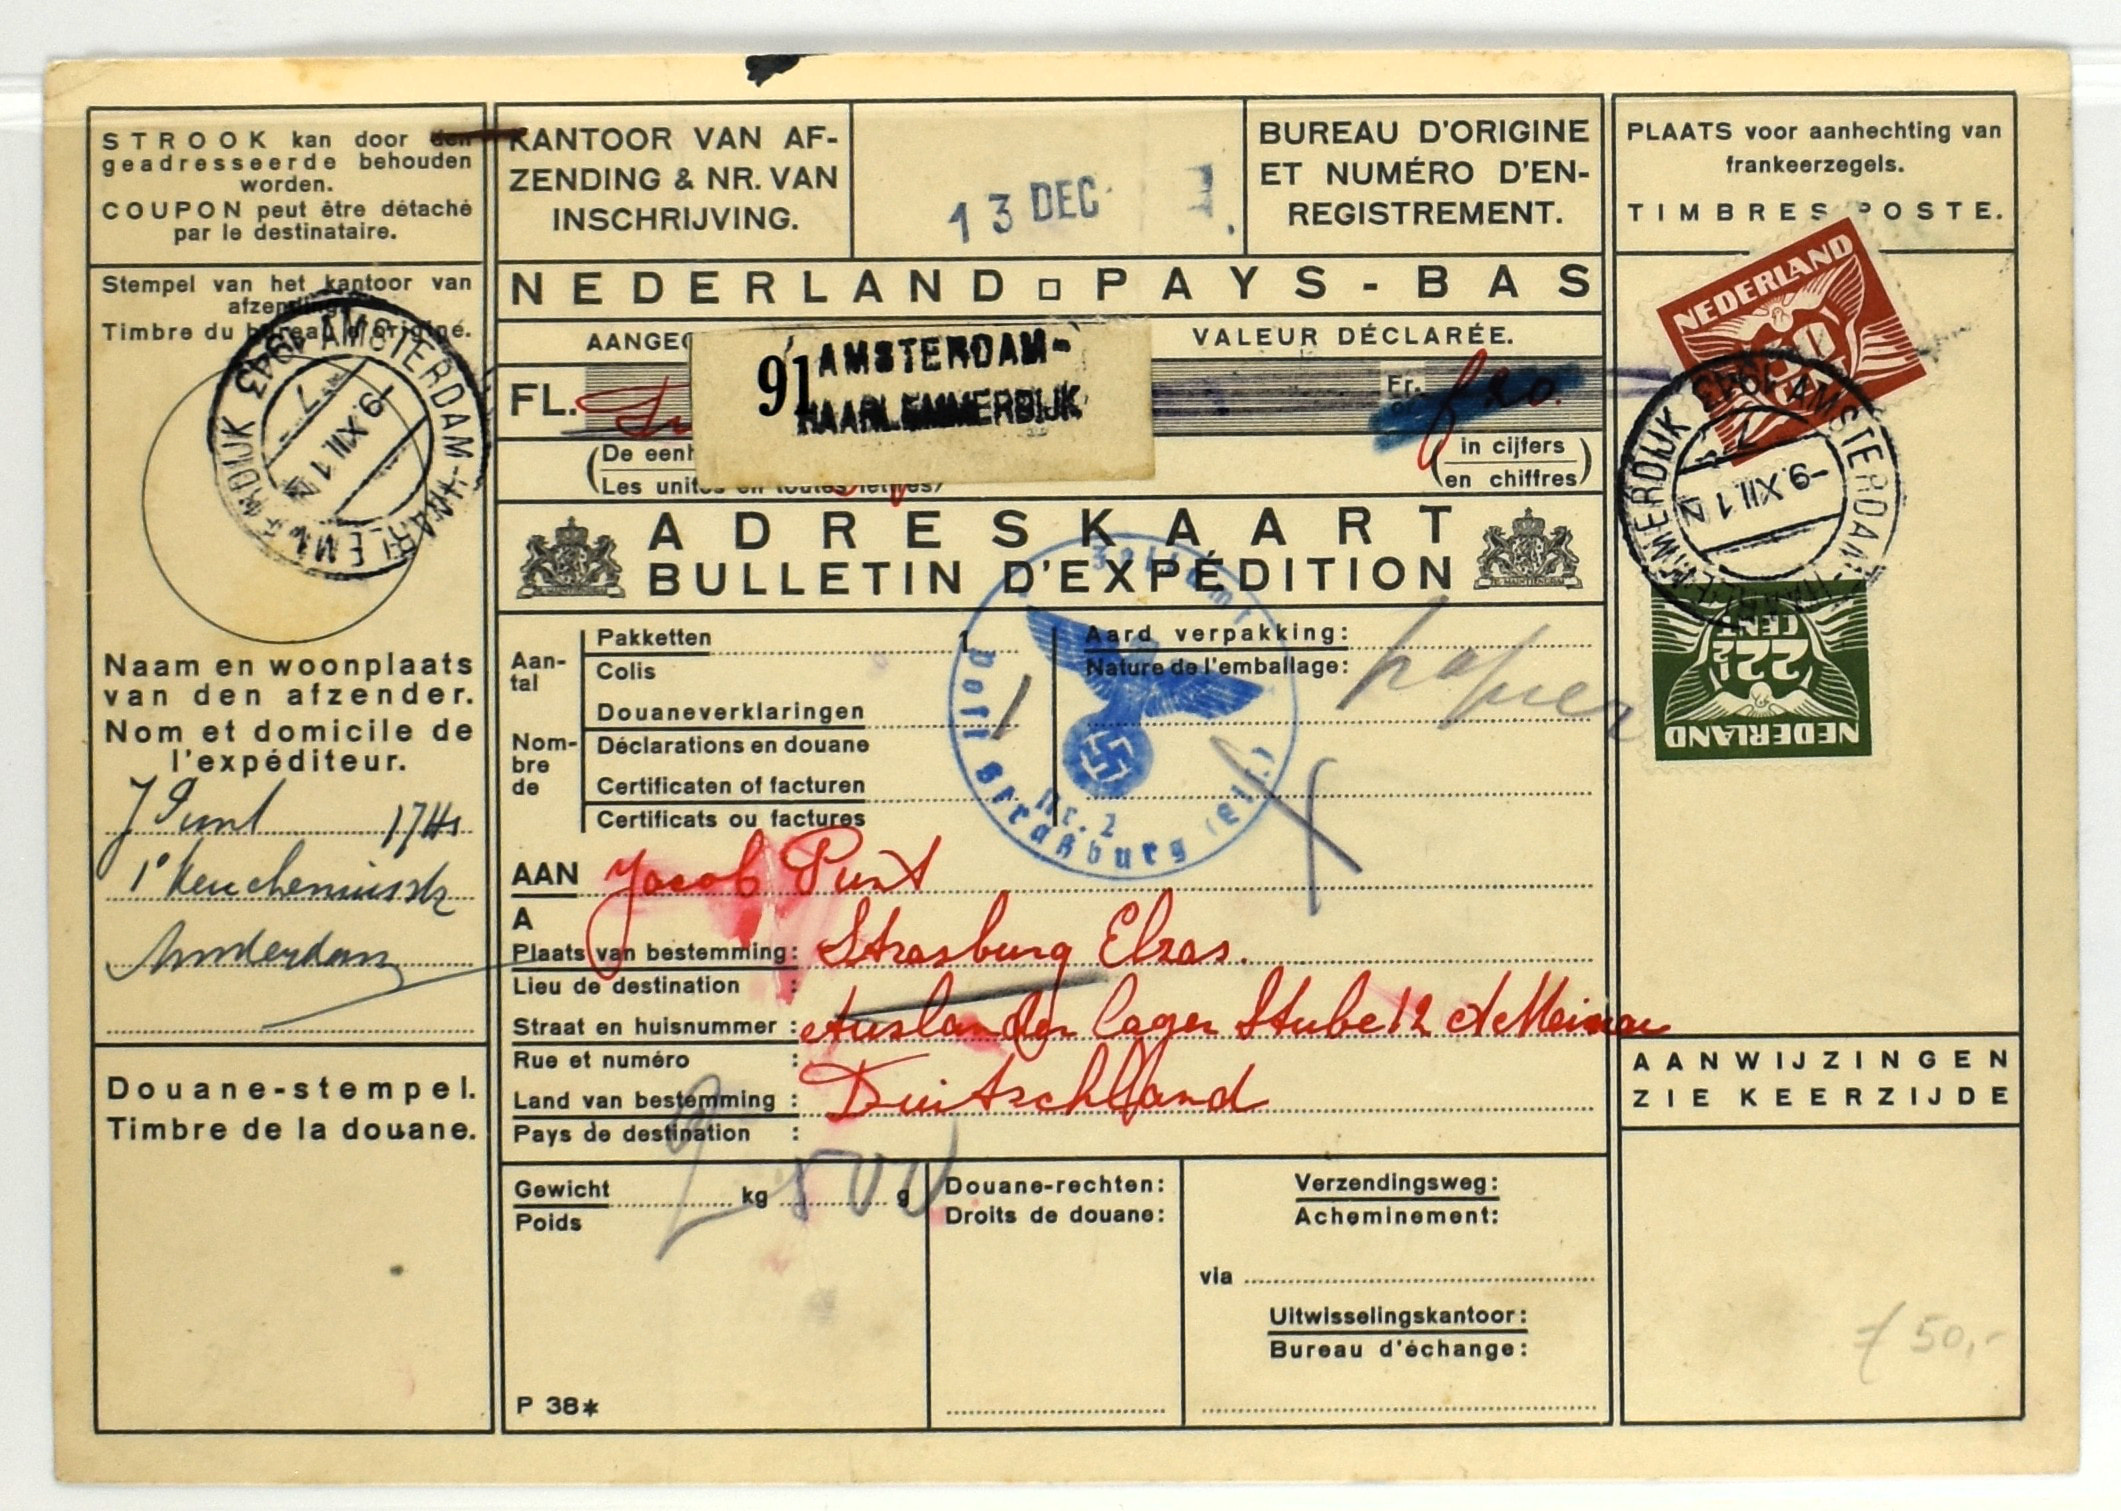 STROOK kan door den
geadresseerde behouden
worden.
COUPON peut être détaché
par le destinataire.
Stempel van het kantoor van
afzending.
Timbre du bureau d'origine.
AMSTERDAM-HAARLEMMERDIJK 1943
-9.XII.12
7
Naam en woonplaats
van den afzender.
Nom et domicile de
l'expéditeur.
J Punt 174
Amsterdam
Douane-stempel.
Timbre de la douane.
KANTOOR VAN AF-
ZENDING & NR. VAN
INSCHRIJVING.
13 DEC
BUREAU D'ORIGINE
ET NUMÉRO D'EN-
REGISTREMENT.
NEDERLAND PAYS-BAS
VALEUR DÉCLARÉE.
91 AMSTERDAM-
HAARLEMMERDIJK
FL.
Fr.
in cijfers
en chiffres
De een
Les unités en toutes lettres
ADRESKAART
BULLETIN D'EXPÉDITION
Aan-
tal
Nom-
bre
de
Pakketten 1
Colis
Douaneverklaringen 1
Déclarations en douane
Certificaten of facturen
Certificats ou factures
Aard verpakking:
Nature de l'emballage:
papier
Zollamt
Post Straßburg (Els.)
Nr. 2
AAN Jacob Punt
A
Plaats van bestemming: Strasburg Elzas.
Lieu de destination :
Straat en huisnummer : Auslander lager Stube 12 A Meinau
Rue et numéro :
Land van bestemming : Duitschland
Pays de destination :
Gewicht 2 kg 500 g
Poids
P 38*
Douane-rechten:
Droits de douane:
Verzendingsweg:
Acheminement:
via
Uitwisselingskantoor:
Bureau d'échange:
PLAATS voor aanhechting van
frankeerzegels.
TIMBRES POSTE.
NEDERLAND
AMSTERDAM-HAARLEMMERDIJK 1943
-9.XII.12
7
22½
CENT
NEDERLAND
AANWIJZINGEN
ZIE KEERZIJDE
f 50,-